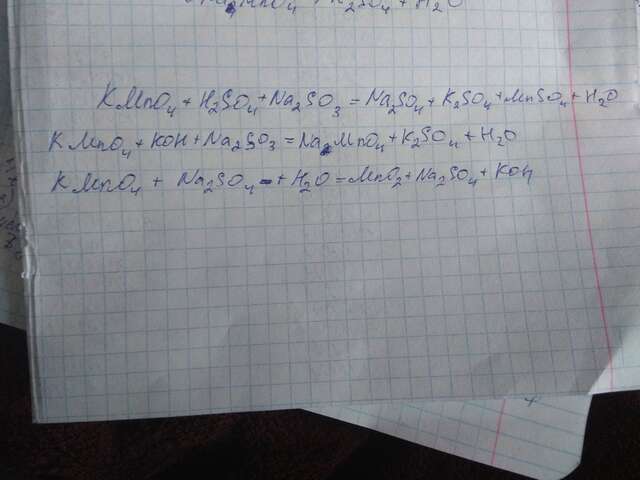 KMnO4 + H2SO4 + Na2SO3 = Na2SO4 + K2SO4 + MnSO4 + H2O
KMnO4 + KOH + Na2SO3 = Na2MnO4 + K2SO4 + H2O
KMnO4 + Na2SO4 + H2O = MnO2 + Na2SO4 + KOH